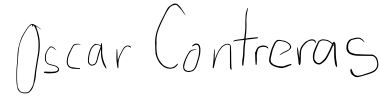 Oscar Contreras